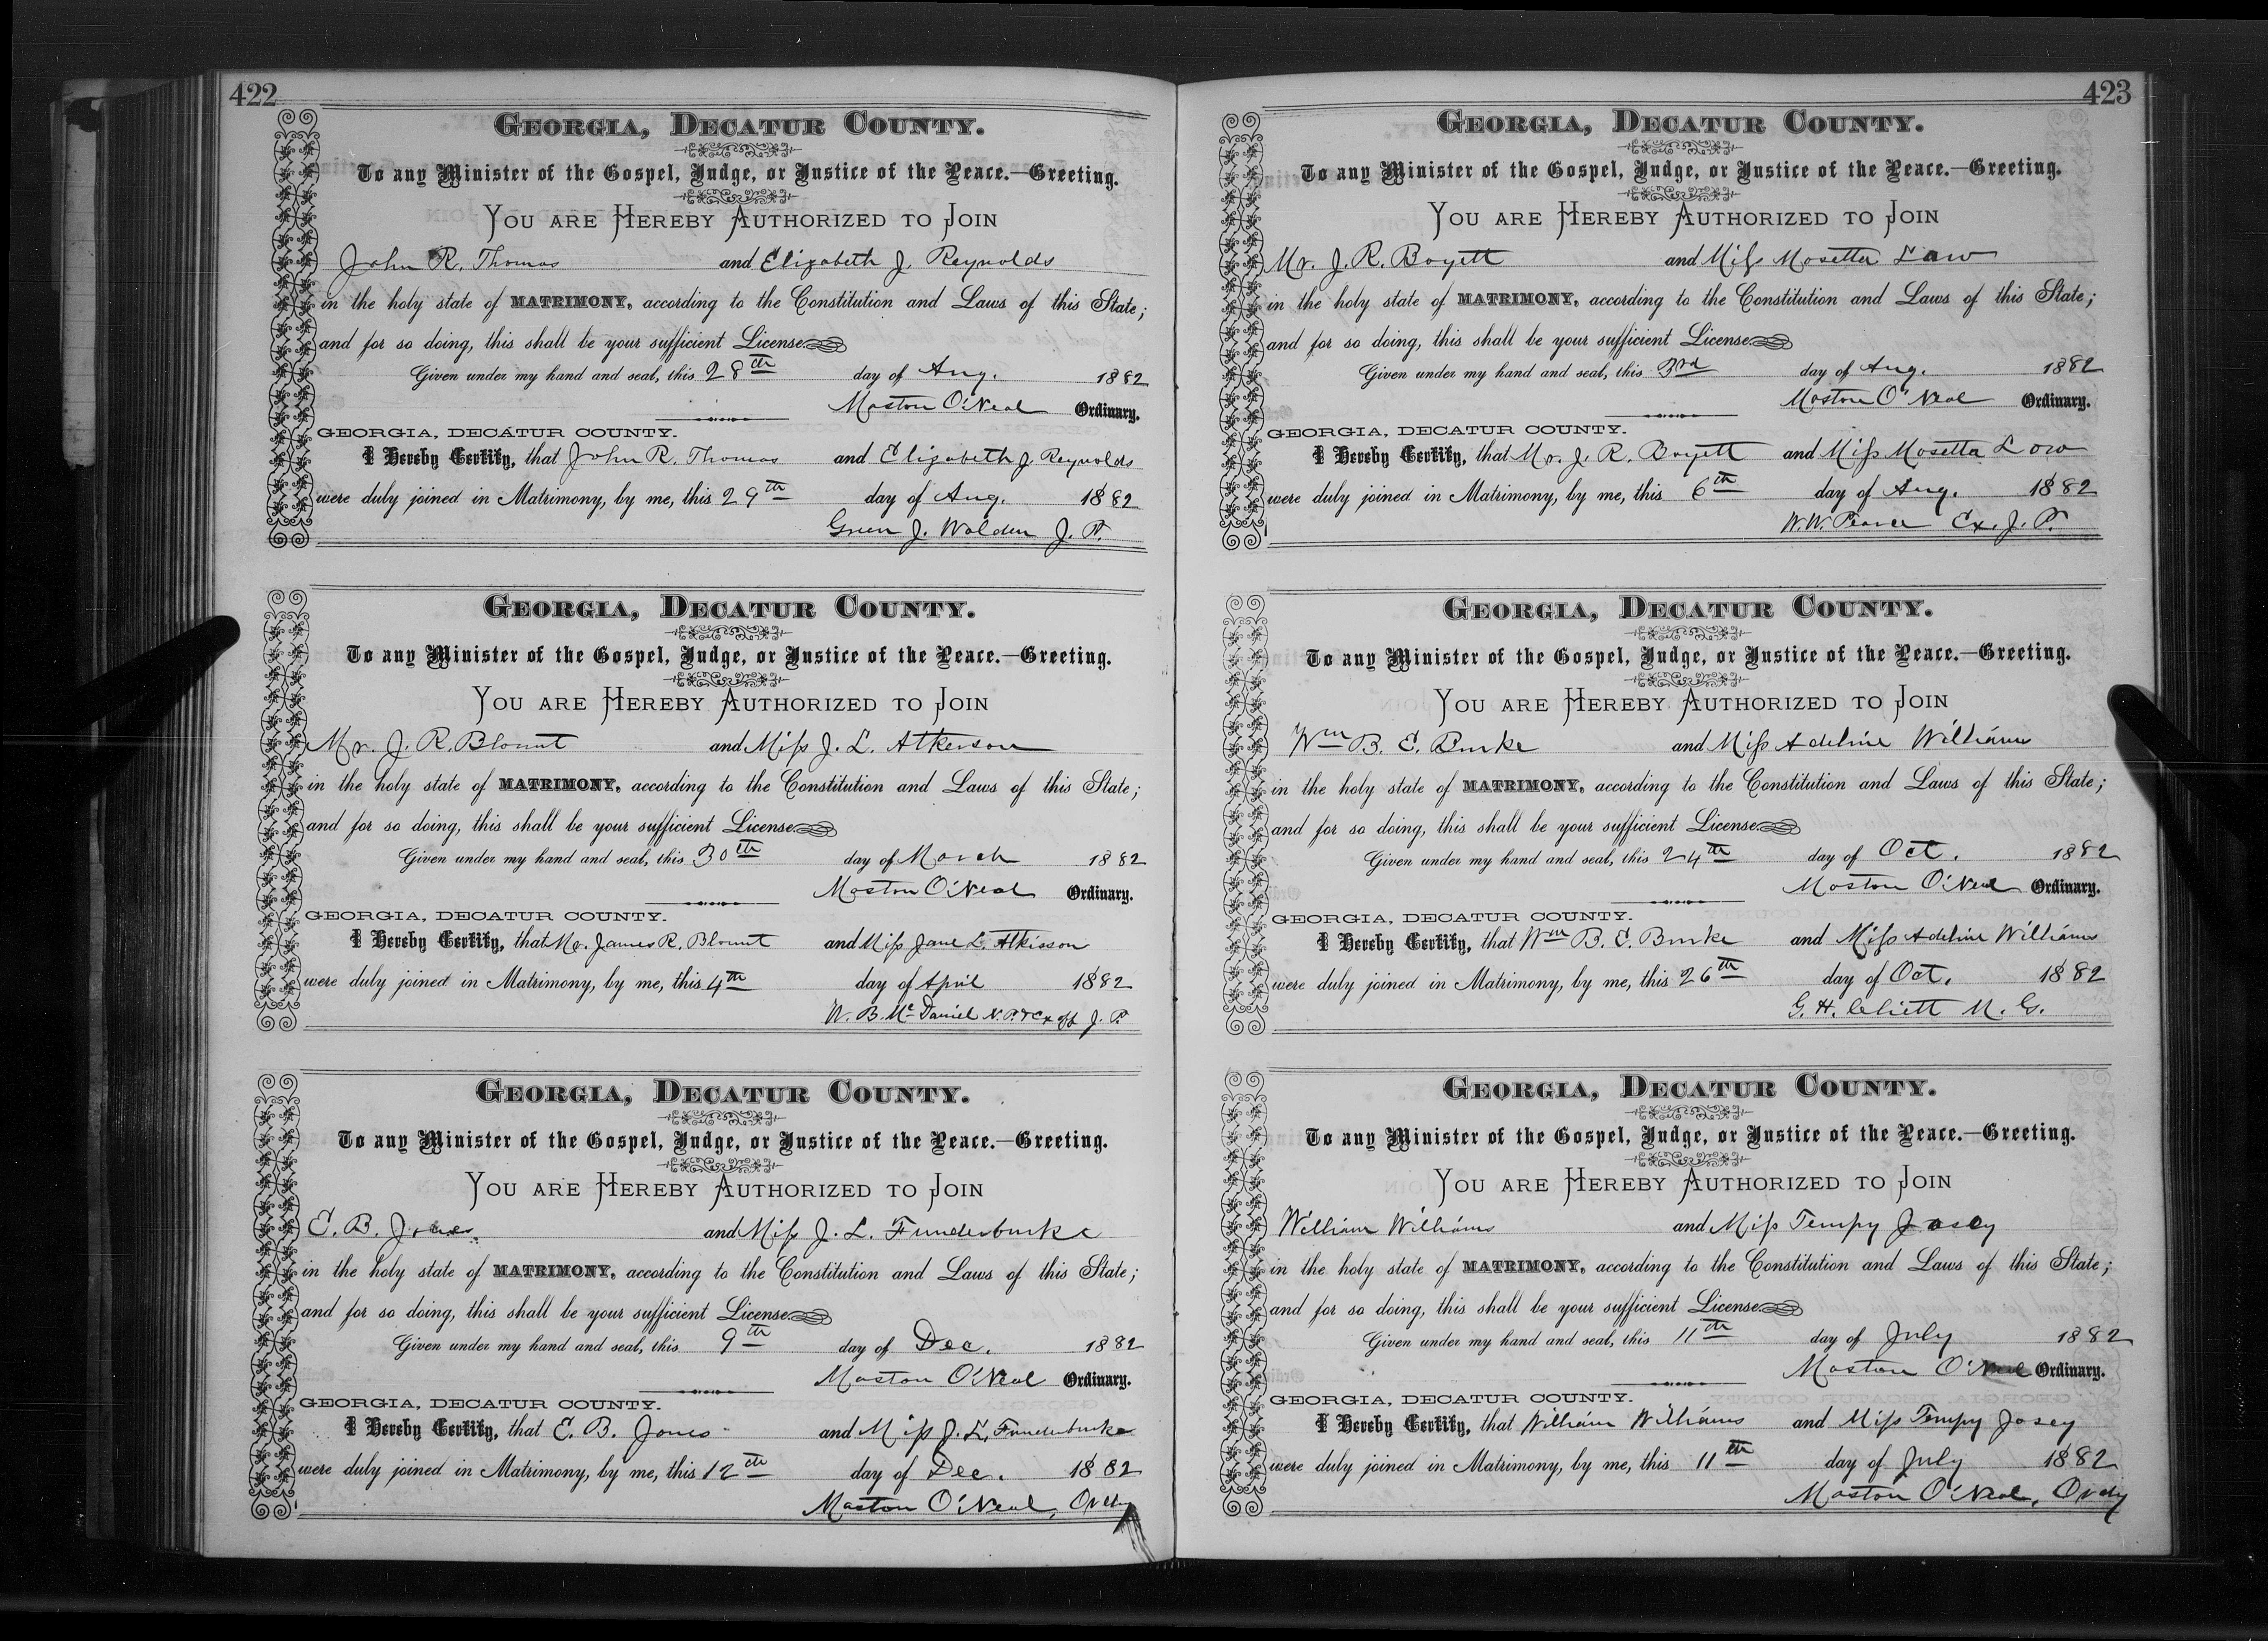 422
GEORGIA, DECATUR COUNTY.
To any Minister of the Gospel, Judge, or Justice of the Peace.—Greeting.
YOU ARE HEREBY AUTHORIZED TO JOIN
John R. Thomas and Elizabeth J. Reynolds
in the holy state of MATRIMONY, according to the Constitution and Laws of this State;
and for so doing, this shall be your sufficient License.
Given under my hand and seal, this 28th day of Aug. 1882
Maston O'Neal Ordinary.
GEORGIA, DECATUR COUNTY.
I Hereby Certify, that John R. Thomas and Elizabeth J. Reynolds
were duly joined in Matrimony, by me, this 29th day of Aug. 1882
Green J. Walden J. P.
GEORGIA, DECATUR COUNTY.
To any Minister of the Gospel, Judge, or Justice of the Peace.—Greeting.
YOU ARE HEREBY AUTHORIZED TO JOIN
Mr. J. R. Blount and Miss J. L. Atkerson
in the holy state of MATRIMONY, according to the Constitution and Laws of this State;
and for so doing, this shall be your sufficient License.
Given under my hand and seal, this 30th day of March 1882
Maston O'Neal Ordinary.
GEORGIA, DECATUR COUNTY.
I Hereby Certify, that Mr. James R. Blount and Miss Jane L. Atkisson
were duly joined in Matrimony, by me, this 4th day of April 1882
W. B. McDaniel N. P. & Ex off J. P.
GEORGIA, DECATUR COUNTY.
To any Minister of the Gospel, Judge, or Justice of the Peace.—Greeting.
YOU ARE HEREBY AUTHORIZED TO JOIN
E. B. Jones and Miss J. L. Funderburke
in the holy state of MATRIMONY, according to the Constitution and Laws of this State;
and for so doing, this shall be your sufficient License.
Given under my hand and seal, this 9th day of Dec. 1882
Maston O'Neal Ordinary.
GEORGIA, DECATUR COUNTY.
I Hereby Certify, that E. B. Jones and Miss J. L. Funderburke
were duly joined in Matrimony, by me, this 12th day of Dec. 1882
Maston O'Neal, Ordy
423
GEORGIA, DECATUR COUNTY.
To any Minister of the Gospel, Judge, or Justice of the Peace.—Greeting.
YOU ARE HEREBY AUTHORIZED TO JOIN
Mr. J. R. Boyett and Miss Mosetta Law
in the holy state of MATRIMONY, according to the Constitution and Laws of this State;
and for so doing, this shall be your sufficient License.
Given under my hand and seal, this 3rd day of Aug. 1882
Maston O'Neal Ordinary.
GEORGIA, DECATUR COUNTY.
I Hereby Certify, that Mr. J. R. Boyett and Miss Mosetta Low
were duly joined in Matrimony, by me, this 6th day of Aug. 1882
W. W. Pearce Ex. J. P.
GEORGIA, DECATUR COUNTY.
To any Minister of the Gospel, Judge, or Justice of the Peace.—Greeting.
YOU ARE HEREBY AUTHORIZED TO JOIN
Wm B. E. Burke and Miss Adeline Williams
in the holy state of MATRIMONY, according to the Constitution and Laws of this State;
and for so doing, this shall be your sufficient License.
Given under my hand and seal, this 24th day of Oct. 1882
Maston O'Neal Ordinary.
GEORGIA, DECATUR COUNTY.
I Hereby Certify, that Wm B. E. Burke and Miss Adeline Williams
were duly joined in Matrimony, by me, this 26th day of Oct. 1882
G. H. Cliett M. G.
GEORGIA, DECATUR COUNTY.
To any Minister of the Gospel, Judge, or Justice of the Peace.—Greeting.
YOU ARE HEREBY AUTHORIZED TO JOIN
William Williams and Miss Tempy Josey
in the holy state of MATRIMONY, according to the Constitution and Laws of this State;
and for so doing, this shall be your sufficient License.
Given under my hand and seal, this 11th day of July 1882
Maston O'Neal Ordinary.
GEORGIA, DECATUR COUNTY.
I Hereby Certify, that William Williams and Miss Tempy Josey
were duly joined in Matrimony, by me, this 11th day of July 1882
Maston O'Neal, Ordy